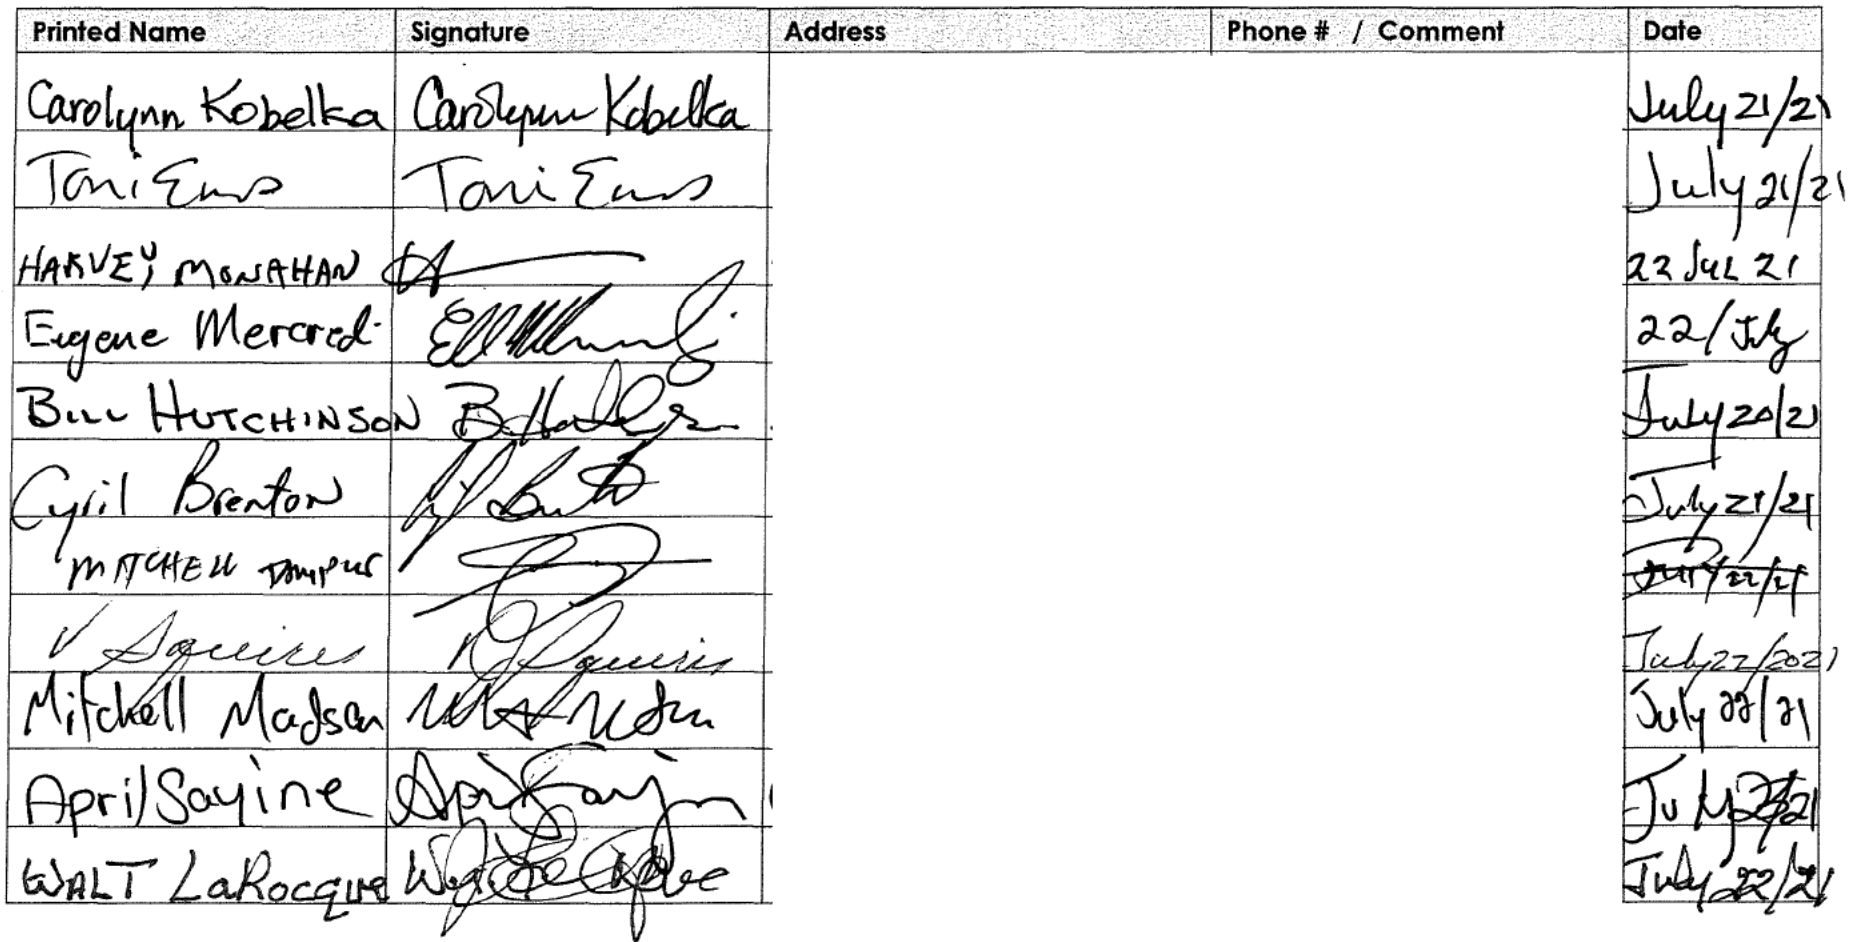 Printed Name Signature Address Phone # / Comment Date
Carolynn Kobelka Carolynn Kobelka July 21/21
Toni Enns Toni Enns July 21/21
HARVEY MONAHAN 22 JUL 21
Eugene Mercredi 22/July
BILL HUTCHINSON B. Hutchinson July 20/21
Cyril Brenton July 21/21
MITCHELL July 22/21
V Squires V Squires July 22/2021
Mitchell Madsen July 22/21
April Sayine April Sayine July 22/21
WALT LaRocque July 22/21